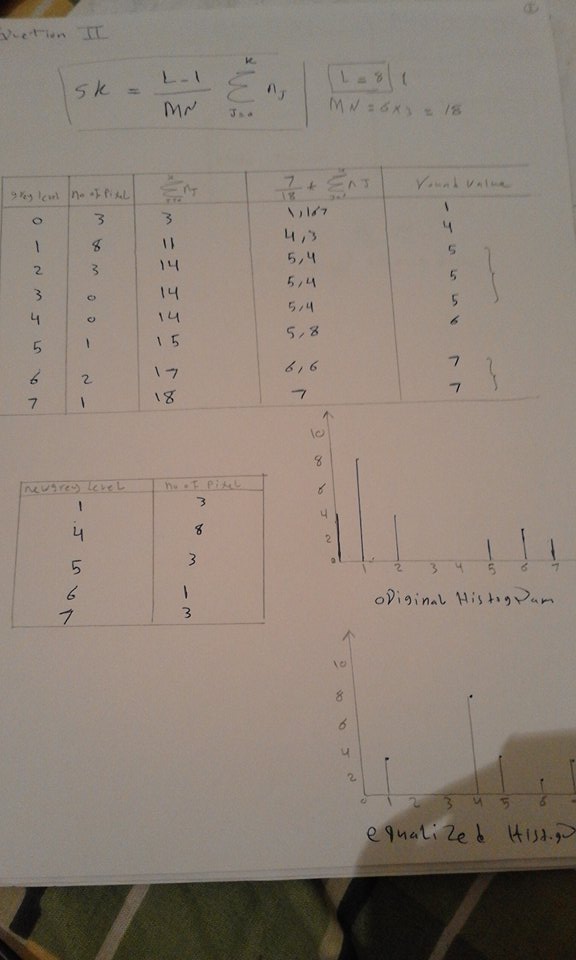 Question II
1
SK = L-1 / MN ∑ (J=0 to K) nJ
L = 8
MN = 6x3 = 18
grey level no of Pixel ∑ nJ 7/18 * ∑ nJ round value
0 3 3 1,167 1
1 8 11 4,3 4
2 3 14 5,4 5
3 0 14 5,4 5
4 0 14 5,4 5
5 1 15 5,8 6
6 2 17 6,6 7
7 1 18 7 7
new grey level no of Pixel
1 3
4 8
5 3
6 1
7 3
10
8
6
4
2
0 1 2 3 4 5 6 7
original Histogram
10
8
6
4
2
0 1 2 3 4 5 6
equalized Histogr